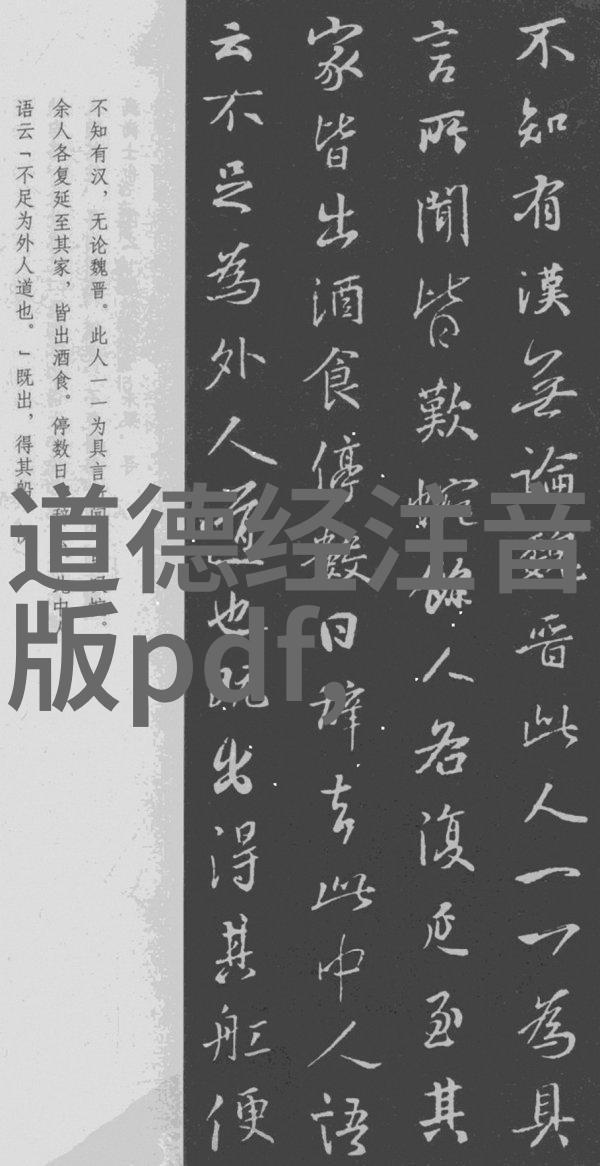 不知有漢無論魏晋此人一一為具
言所聞皆歎惋餘人各復延至其
家皆出酒食停數日辭去此中人語
云不足為外人道也既出得其舡便
不知有汉，无论魏晋。此人一一为具言
余人各复延至其家，皆出酒食。停数日
语云「不足为外人道也。」既出，得其船
道德经注音
版pdf,